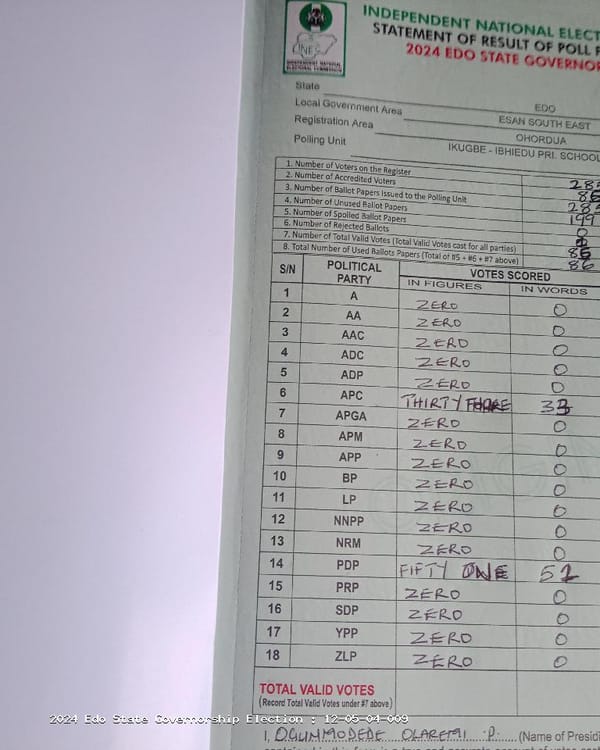 INDEPENDENT NATIONAL ELECT
STATEMENT OF RESULT OF POLL F
2024 EDO STATE GOVERNOR
INEC
INDEPENDENT NATIONAL
ELECTORAL COMMISSION
State EDO
Local Government Area ESAN SOUTH EAST
Registration Area OHORDUA
Polling Unit IKUGBE - IBHIEDU PRI. SCHOOL
1. Number of Voters on the Register 285
2. Number of Accredited Voters 86
3. Number of Ballot Papers Issued to the Polling Unit 285
4. Number of Unused Ballot Papers 199
5. Number of Spoiled Ballot Papers 0
6. Number of Rejected Ballots
7. Number of Total Valid Votes (Total Valid Votes cast for all parties)
8. Total Number of Used Ballots Papers (Total of #5 + #6 + #7 above) 86
S/N POLITICAL PARTY VOTES SCORED
IN FIGURES IN WORDS
1 A ZERO 0
2 AA ZERO 0
3 AAC ZERO 0
4 ADC ZERO 0
5 ADP ZERO 0
6 APC THIRTY 33
7 APGA ZERO 0
8 APM ZERO 0
9 APP ZERO 0
10 BP ZERO 0
11 LP ZERO 0
12 NNPP ZERO 0
13 NRM ZERO 0
14 PDP FIFTY ONE 51
15 PRP ZERO 0
16 SDP ZERO 0
17 YPP ZERO 0
18 ZLP ZERO 0
TOTAL VALID VOTES
(Record Total Valid Votes under #7 above)
2024 Edo State Governorship Election : 12-05-04-009
I, OGUNMODEDE OLAREMI .P. (Name of Presidi